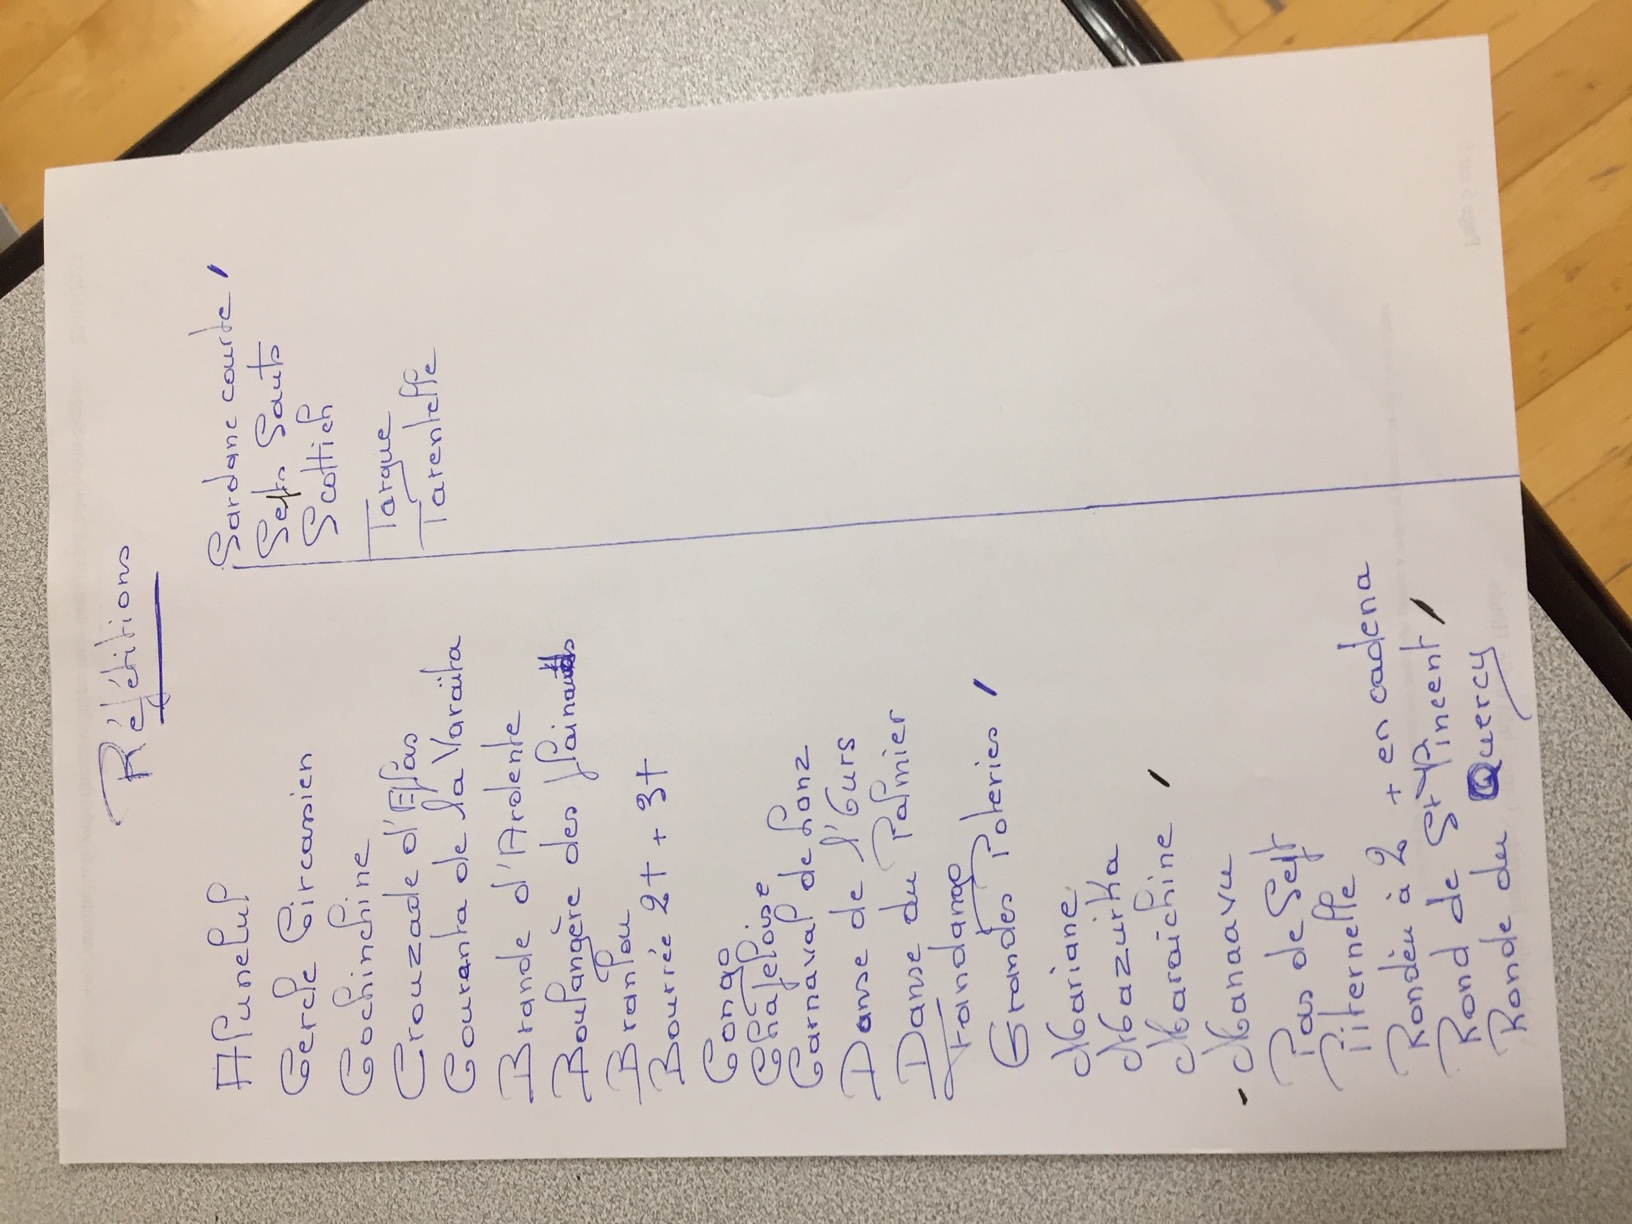 Répétitions
Alunelul
Cercle Circassien
Cochinchine
Crouzade d'Espas
Couranta de la Varaïta
Brande d'Ardente
Boulangère des
Branlou
Bourrée 2t + 3t
Congo
Chapeloise
Carnaval de Lanz
Danse de l'Ours
Danse du Palmier
Fandango
Grandes Poteries
Mariane
Mazurka
Maraîchine
Manaavu
Pas de Sept
Piternelle
Rondèu à 2 + en cadena
Rond de St Vincent
Ronde du Quercy
Sardane courte
Septs Sauts
Scottich
Targue
Tarentelle